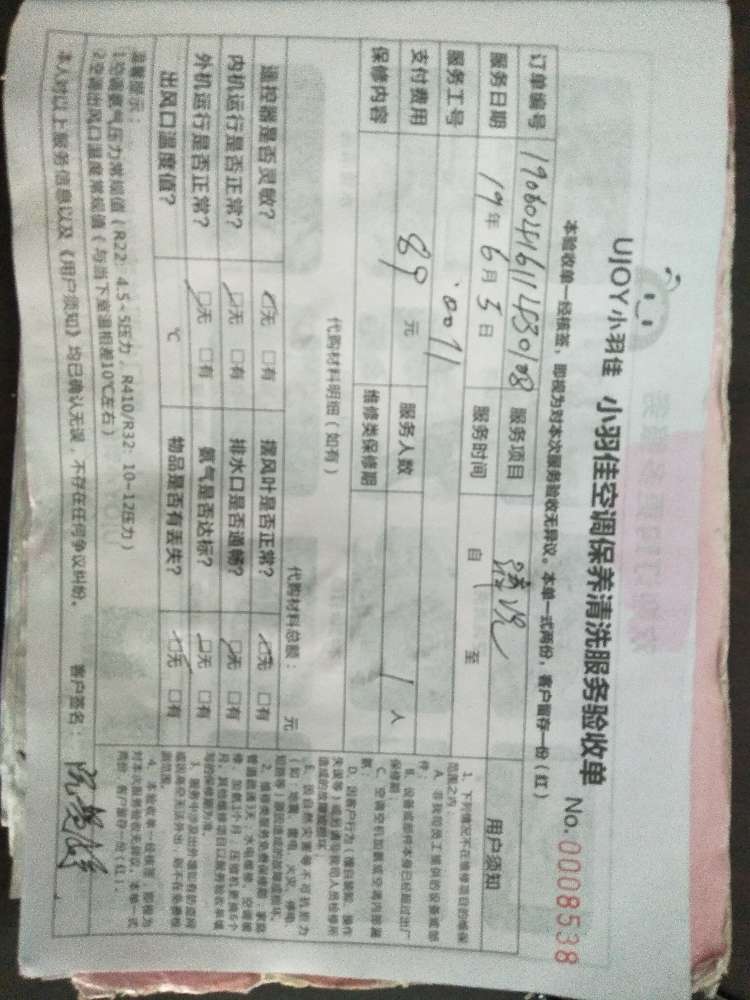 UJOY小羽佳 小羽佳空调保养清洗服务验收单 No.0008538
本验收单一经核签，即视为对本次服务验收无异议。本单一式两份，客户留存一份（红）
订单编号 服务项目 清洗 用户须知
服务日期 19年6月5日 服务时间 自 至
服务工号 0071
支付费用 89元 服务人数 1人
保修内容 维修类保修期
代购材料明细（如有） 代购材料总额： 元
遥控器是否灵敏？ 无 有 摆风叶是否正常？ 无 有
内机运行是否正常？ 无 有 排水口是否通畅？ 无 有
外机运行是否正常？ 无 有 氨气是否达标？ 无 有
出风口温度值？ ℃ 物品是否有丢失？ 无 有
温馨提示：
1.空调氨气压力常规值（R22：4.5~5压力，R410/R32：10-12压力）
2.空调出风口温度常规值（与当下室温相差10℃左右）
本人对以上服务信息以及《用户须知》均已确认无误，不存在任何争议纠纷。 客户签名：
1、下列情况不在维修项目的维保
范围之内：
A、非我司员工提供的设备或部
件；
B、设备或部件本身已经超过出厂
保修期；
C、空调空机加氨或空调内部漏
氨；
D、因客户行为（擅自装卸、操作
E、因自然灾害等不可抗力
（如：地震、雷电、火灾、停电、
4、本验收单一经核签，即视为
对本次服务验收无异议。本单一式
两份，客户留存一份（红）。